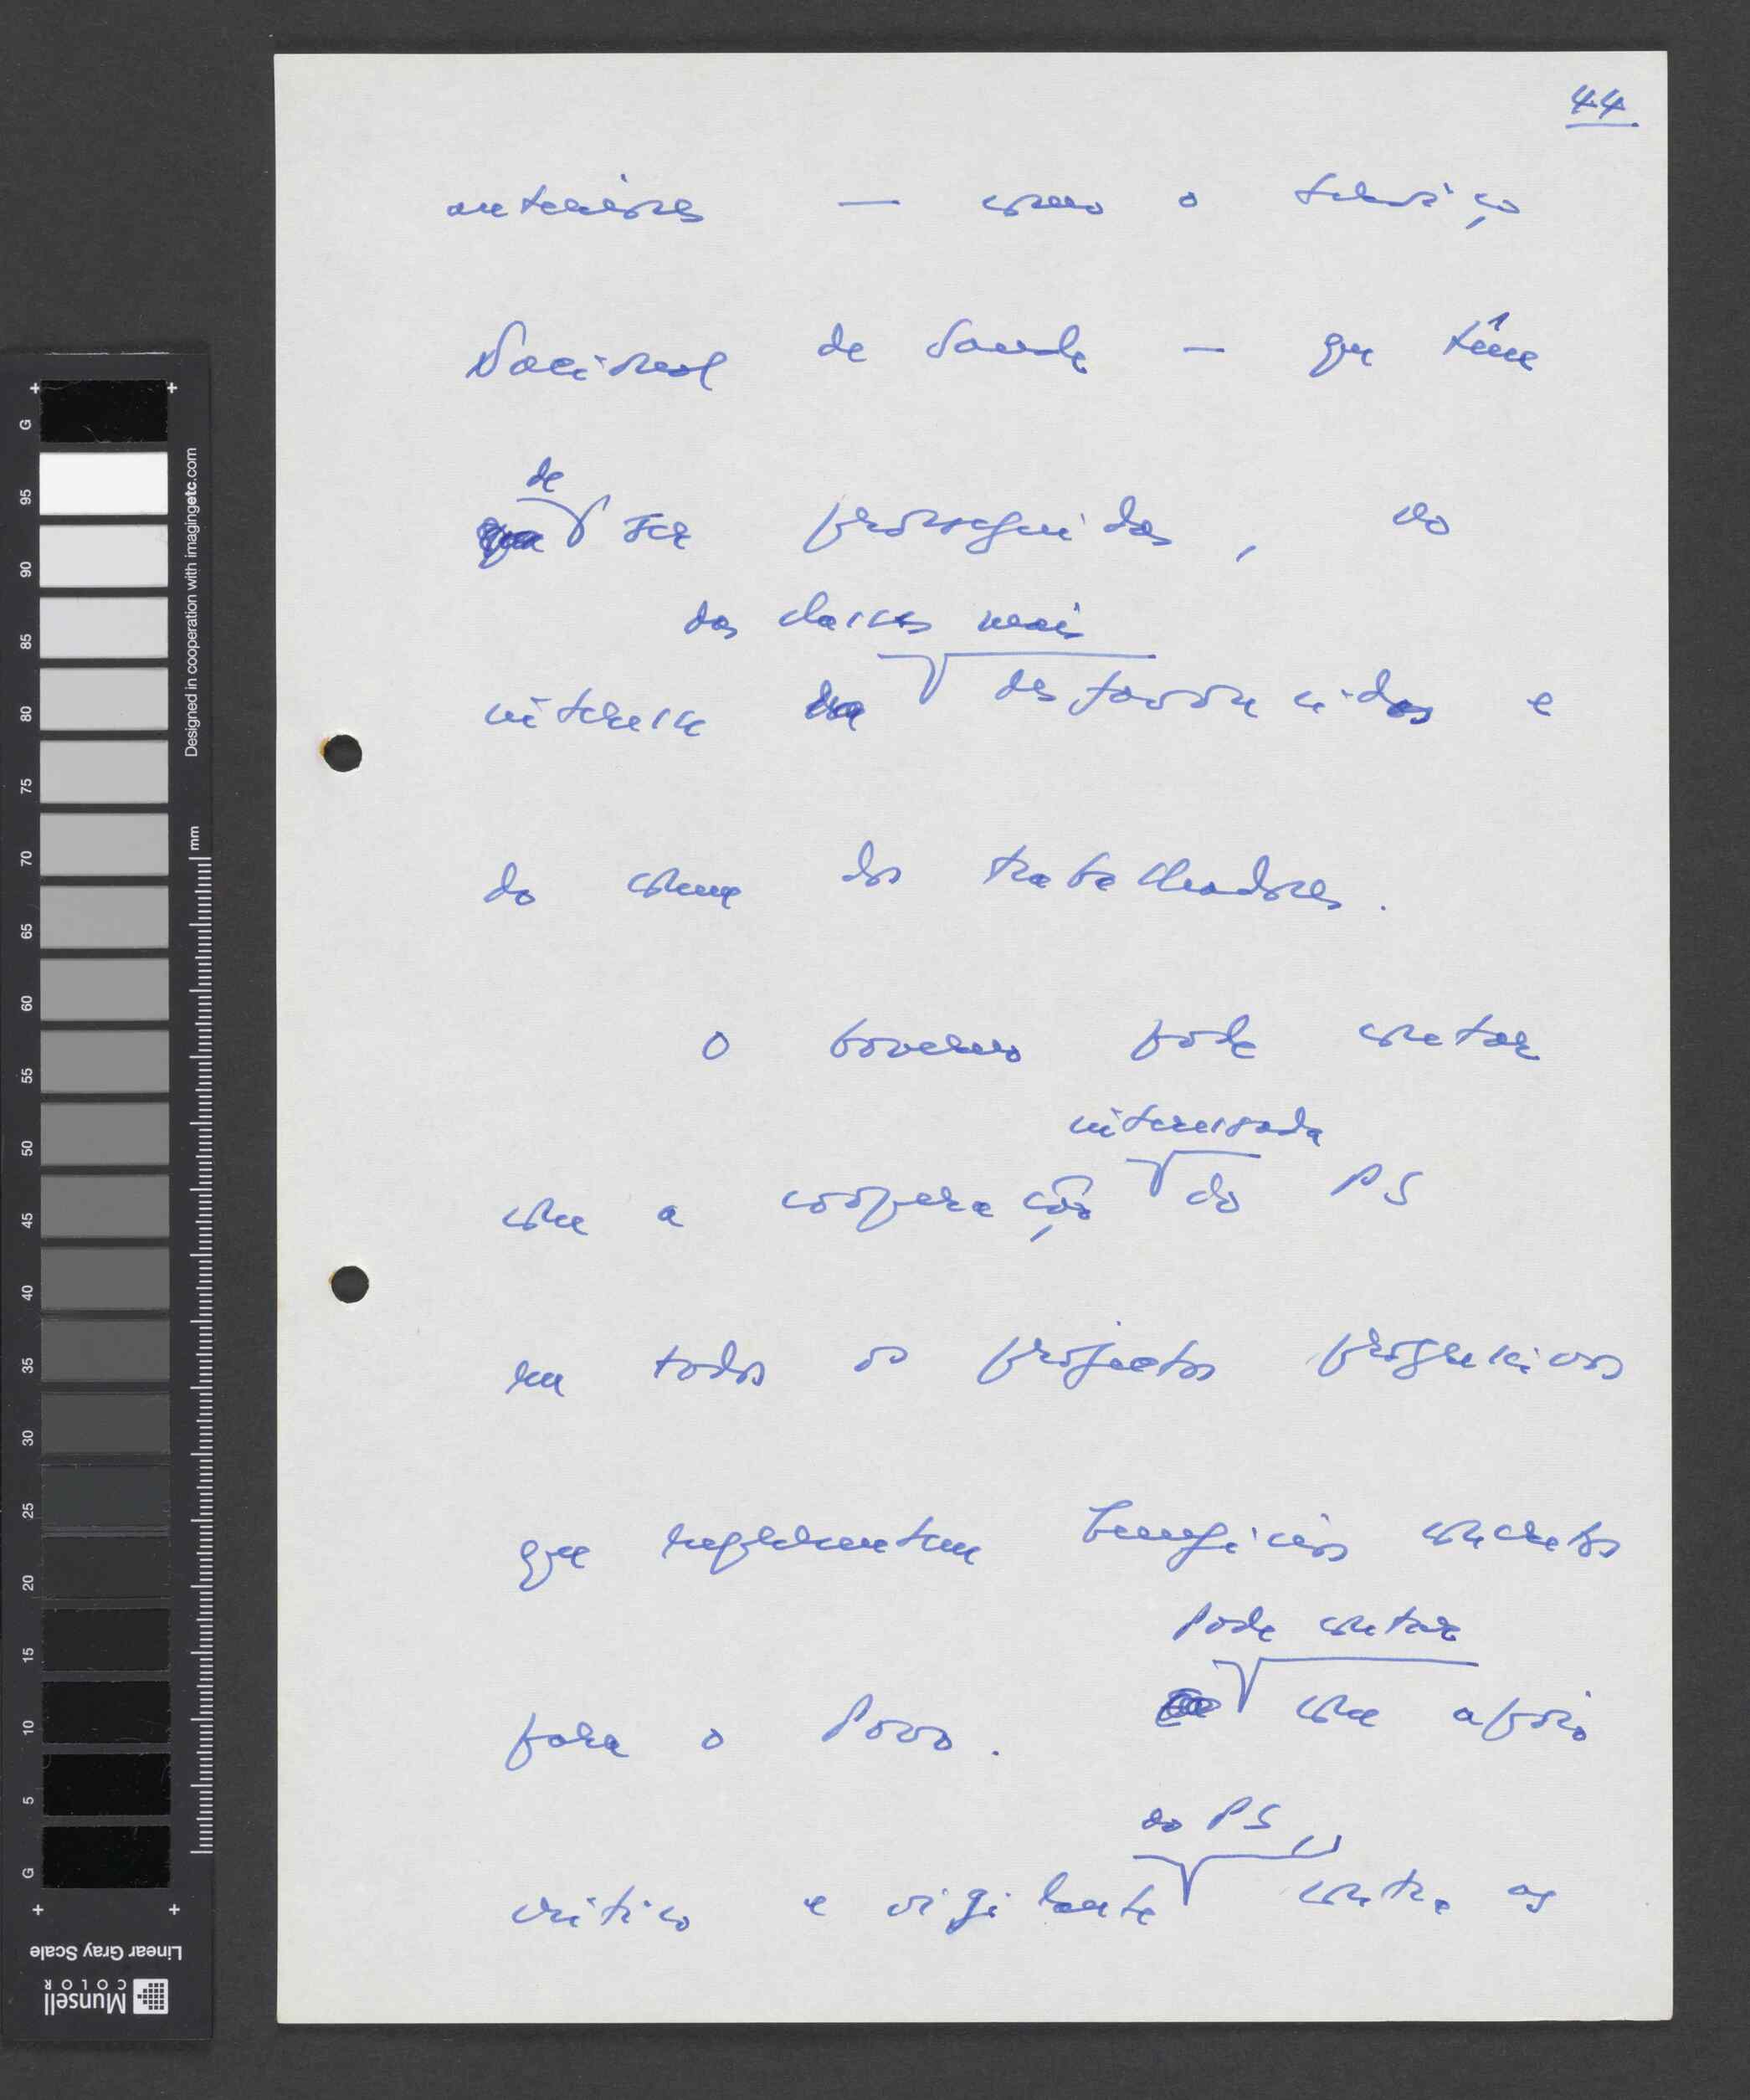 44
anteriores — como o Serviço
Nacional de Saúde — que têm
de
ser prosseguidas, no
das classes mais
interesse desfavorecidas e
do dos trabalhadores.
O Governo pode contar
interessada
com a cooperação do PS
em todos os projectos progressivos
que representem benefícios concretos
pode contar
para o Povo. com apoio
do PS,
crítico e vigilante contra as
G 95 90 85 80 75 70 65 60 55 50 45 40 35 30 25 20 15 10 5 G
Designed in cooperation with imagingetc.com
mm
Linear Gray Scale
Munsell
COLOR